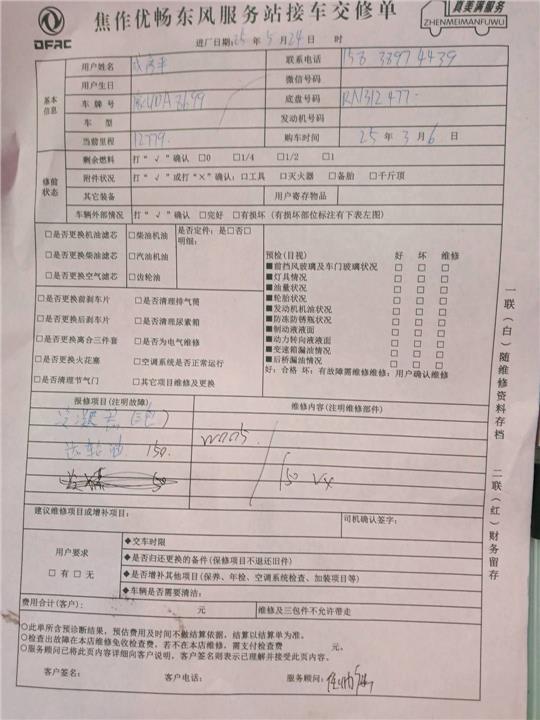 DFAC
焦作优畅东风服务站接车交修单
真美满服务
ZHENMEIMANFUWU
进厂日期: 25 年 5 月 24 日 时
基本信息
用户姓名
联系电话 158 3897 4439
用户生日
微信号码
车牌号
底盘号码
车型
发动机号码
当前里程 12779.
购车时间 25 年 3 月 6 日
修前状态
剩余燃料 打“√”确认 □0 □1/4 □1/2 □1
附件状况 打“√”或打“×”确认：□工具 □灭火器 □备胎 □千斤顶
其它装备
用户寄存物品
车辆外部情况 打“√”确认 □完好 □有损坏（有损坏部位标注有下表左图）
□是否更换机油滤芯 □柴油机油 是否定件：是□否□
明细：
□是否更换柴油滤芯 □汽油机油
□是否更换空气滤芯 □齿轮油
□是否更换前刹车片 □是否清理排气筒
□是否更换后刹车片 □是否清理尿素箱
□是否更换离合三件套 □是否为电气维修
□是否更换火花塞 □空调系统是否正常运行
□是否清理节气门 □其它项目维修及更换
预检(目视) 好 坏 维修
■前挡风玻璃及车门玻璃状况 □ □ □
■灯具情况 □ □ □
■油量状况 □ □ □
■轮胎状况 □ □ □
■发动机机油状况 □ □ □
■防冻防锈瓶状况 □ □ □
■制动液液面 □ □ □
■动力转向液液面 □ □ □
■变速箱漏油情况 □ □ □
■后桥漏油情况 □ □ □
好：合格 坏：有故障需维修维修：用户确认维修
报修项目(注明故障)
维修内容(注明维修部件)
齿轮油 150.
150 vx
建议维修项目或增补项目：
司机确认签字：
用户要求
□有 □无
◆交车时限
◆是否归还更换的备件(保修项目不退还旧件)
◆是否增补其他项目(保养、年检、空调系统检查、加装项目等)
◆车辆是否需要清洁：
费用合计(客户)： 元
维修及三包件不允许带走
○此单所含预诊断结果，预估费用及时间不做结算依据，结算以结算单为准。
○检查出故障在本店维修免收检查费，若不在本店维修，需支付检查费 元。
○服务顾问已将此页内容详细向客户说明，客户签名则表示已理解并接受此页内容。
客户签名： 客户电话： 服务顾问：
一联(白)随维修资料存档
二联(红)财务留存